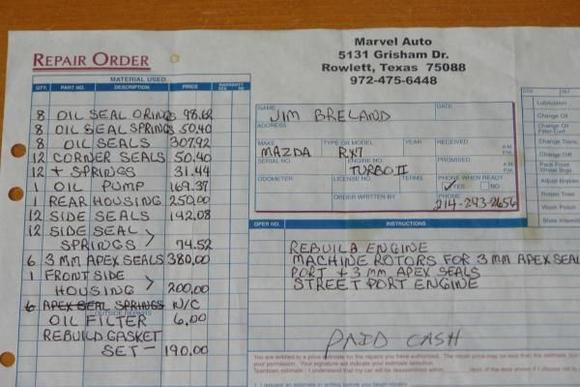 REPAIR ORDER
Marvel Auto
5131 Grisham Dr.
Rowlett, Texas 75088
972-475-6448
MATERIAL USED
QTY. PART NO. DESCRIPTION PRICE
8 OIL SEAL ORINGS 98.62
8 OIL SEAL SPRINGS 50.40
8 OIL SEALS 307.92
12 CORNER SEALS 50.40
12 + SPRINGS 31.44
1 OIL PUMP 169.37
1 REAR HOUSING 250.00
12 SIDE SEALS 142.08
12 SIDE SEAL
SPRINGS > 74.52
6 3 MM APEX SEALS 380.00
1 FRONT SIDE
HOUSING > 200.00
6 APEX SEAL SPRINGS N/C
OIL FILTER 6.00
REBUILD GASKET
SET - 190.00
NAME JIM BRELAND DATE
ADDRESS
MAKE MAZDA TYPE OR MODEL RX7 YEAR RECEIVED A.M. P.M.
SERIAL NO. ENGINE NO. TURBO II PROMISED A.M. P.M.
ODOMETER LICENSE NO. TERMS PHONE WHEN READY
YES NO
ORDER WRITTEN BY PHONE 214-243-2656
OPER NO. INSTRUCTIONS
REBUILD ENGINE
MACHINE ROTORS FOR 3 MM APEX SEAL
PORT + 3 MM APEX SEALS
STREET PORT ENGINE
PAID CASH
Lubrication
Change Oil
Change Oil
Change Trans.
Change Diff.